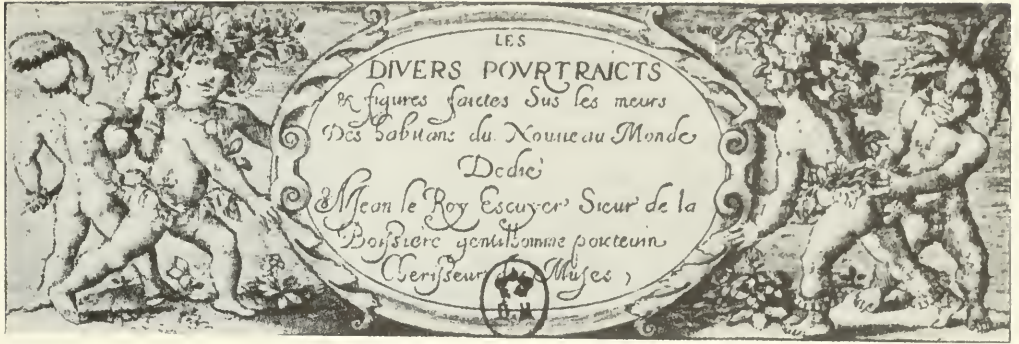 LES
DIVERS POVRTRAICTS
& figures faictes Sus les meurs
Des habitans du Nouueau Monde
Dedié
A Jean le Roy Escuyer Sieur de la
Boissiere gentilhomme poicteuin
Cherisseur des Muses,